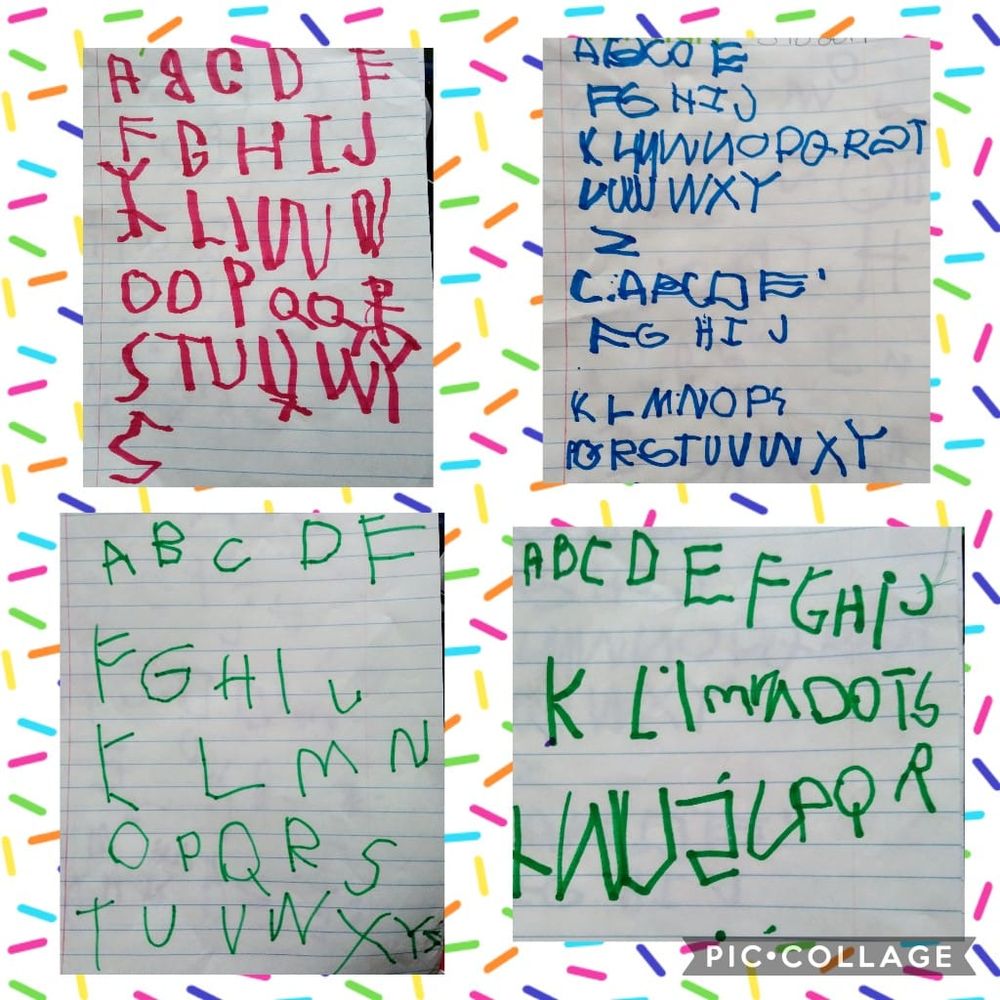 A B C D F
F G H I J
K L
O O P Q Q R
S T U W Y
S
A B C D E
F G H I J
K L O P Q R S T
V W X Y
Z
C A B C D E
F G H I J
K L M N O P S
P Q R S T U V W X Y
A B C D E
F G H I J
K L M N
O P Q R S
T U V W X Y S
A B C D E F G H I J
K L I M D O T S
P Q R
PIC•COLLAGE